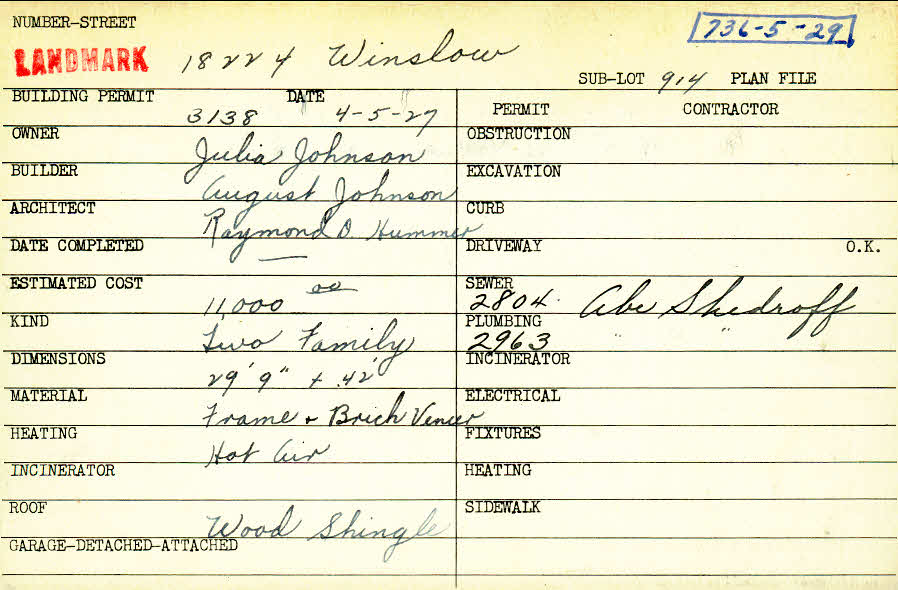 NUMBER-STREET
736-5-29
LANDMARK 18224 Winslow
SUB-LOT 914 PLAN FILE
BUILDING PERMIT 3138 DATE 4-5-27
PERMIT CONTRACTOR
OWNER Julia Johnson
OBSTRUCTION
BUILDER August Johnson
EXCAVATION
ARCHITECT Raymond D. Hummer
CURB
DATE COMPLETED —
DRIVEWAY O.K.
ESTIMATED COST 11,000 00
SEWER 2804 Abe Shedroff
KIND Two Family
PLUMBING 2963 " "
DIMENSIONS 29' 9" + 42'
INCINERATOR
MATERIAL Frame + Brick Veneer
ELECTRICAL
HEATING Hot Air
FIXTURES
INCINERATOR
HEATING
ROOF Wood Shingle
SIDEWALK
GARAGE-DETACHED-ATTACHED